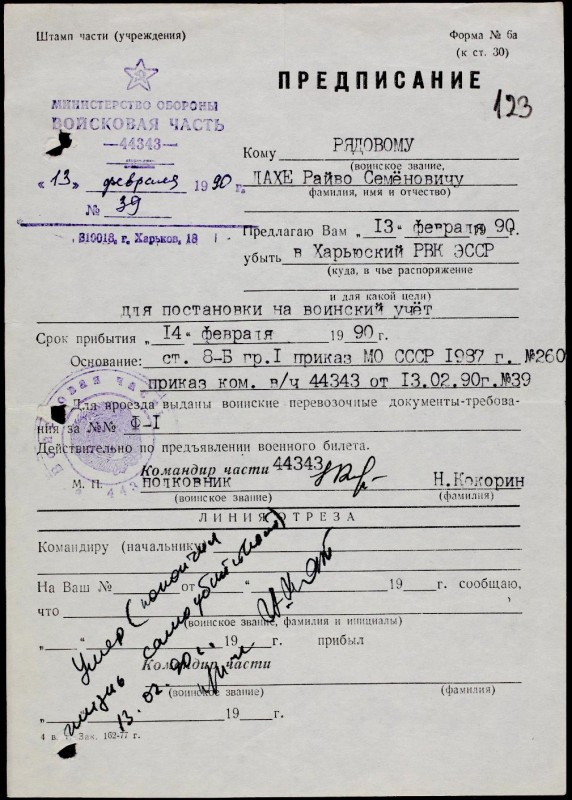 Штамп части (учреждения)
Форма № 6а
(к ст. 30)
МИНИСТЕРСТВО ОБОРОНЫ
ВОЙСКОВАЯ ЧАСТЬ
—44343—
"13" февраля 1990 г.
№ 39
310018, г. Харьков, 18
ПРЕДПИСАНИЕ
123
Кому РЯДОВОМУ
(воинское звание,
ЛАХЕ Райво Семёновичу
фамилия, имя и отчество)
Предлагаю Вам "13" февраля 1990г.
убыть в Харьюский РВК ЭССР
(куда, в чье распоряжение
и для какой цели)
для постановки на воинский учёт
Срок прибытия "14" февраля 1990 г.
Основание: ст. 8-Б гр.I приказ МО СССР 1987 г. №260
приказ ком. в/ч 44343 от 13.02.90г.№39
Для проезда выданы воинские перевозочные документы-требова-
ния за №№ Ф-I
Действительно по предъявлении военного билета.
Войсковая часть
443
Командир части 44343
М. П. полковник Н.Кокорин
(воинское звание) (фамилия)
ЛИНИЯ ОТРЕЗА
Командиру (начальнику)
На Ваш № от " " 19 г. сообщаю,
что
(воинское звание, фамилия и инициалы)
" " 19 г. прибыл
Командир части
(воинское звание) (фамилия)
" " 19 г.
Умер (покончил
жизнь самоубийством)
13.02.90 г.
4 в. т. Зак. 162-77 г.